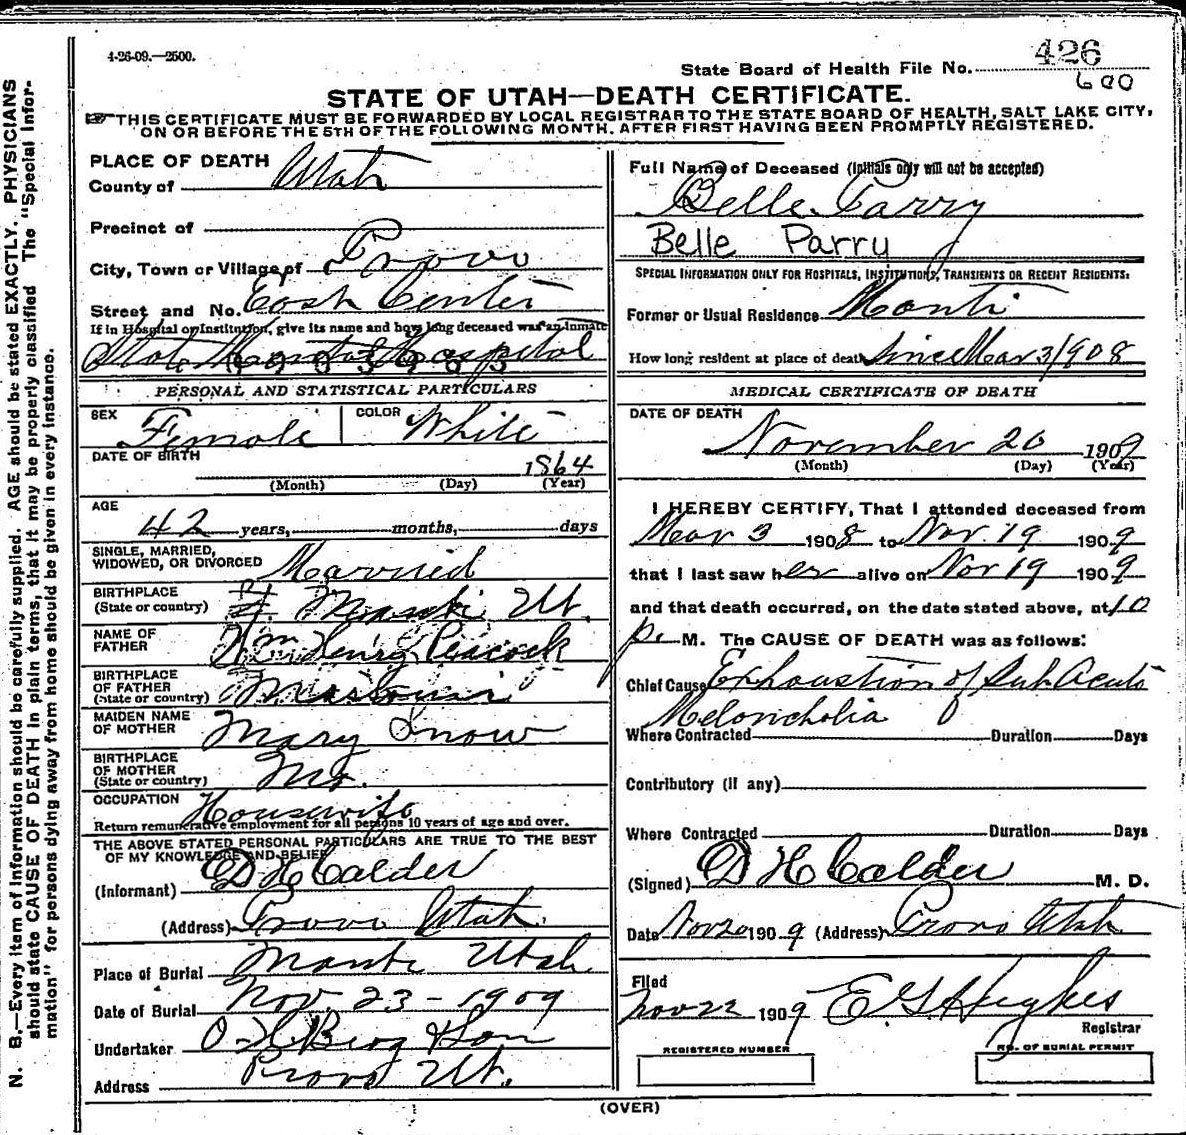 4-26-09.—2500.
State Board of Health File No. 426
600
STATE OF UTAH—DEATH CERTIFICATE.
THIS CERTIFICATE MUST BE FORWARDED BY LOCAL REGISTRAR TO THE STATE BOARD OF HEALTH, SALT LAKE CITY,
ON OR BEFORE THE 5TH OF THE FOLLOWING MONTH. AFTER FIRST HAVING BEEN PROMPTLY REGISTERED.
N. B.—Every item of information should be carefully supplied. AGE should be stated EXACTLY. PHYSICIANS
should state CAUSE OF DEATH in plain terms, that it may be properly classified. The "Special Infor-
mation" for persons dying away from home should be given in every instance.
PLACE OF DEATH
County of Utah
Precinct of
City, Town or Village of Provo
Street and No. East Center
If in Hospital or Institution, give its name and how long deceased was an inmate
State Mental Hospital
PERSONAL AND STATISTICAL PARTICULARS
SEX Female COLOR White
DATE OF BIRTH 1864
(Month) (Day) (Year)
AGE
42 years, months, days
SINGLE, MARRIED,
WIDOWED, OR DIVORCED Married
BIRTHPLACE
(State or country) Manti Ut.
NAME OF
FATHER Wm Henry Peacock
BIRTHPLACE
OF FATHER
(State or country) Missouri
MAIDEN NAME
OF MOTHER Mary Snow
BIRTHPLACE
OF MOTHER
(State or country) Mo.
OCCUPATION Housewife
Return remunerative employment for all persons 10 years of age and over.
THE ABOVE STATED PERSONAL PARTICULARS ARE TRUE TO THE BEST
OF MY KNOWLEDGE AND BELIEF
(Informant) D H Calder
(Address) Provo Utah.
Place of Burial Manti Utah
Date of Burial Nov. 23 - 1909
Undertaker O. H. Berg & Son
Address Provo Ut.
Full Name of Deceased (Initials only will not be accepted)
Belle Parry
Belle Parry
SPECIAL INFORMATION ONLY FOR HOSPITALS, INSTITUTIONS, TRANSIENTS OR RECENT RESIDENTS:
Former or Usual Residence Manti
How long resident at place of death Since Mar 3/1908
MEDICAL CERTIFICATE OF DEATH
DATE OF DEATH
November 20 1909
(Month) (Day) (Year)
I HEREBY CERTIFY, That I attended deceased from
Mar 3 1908 to Nov. 19 1909
that I last saw her alive on Nov 19 1909
and that death occurred, on the date stated above, at 10
p. M. The CAUSE OF DEATH was as follows:
Chief Cause Exhaustion of Sub Acute
Meloncholia
Where Contracted Duration Days
Contributory (if any)
Where Contracted Duration Days
(Signed) D H Calder M. D.
Date Nov 20 1909 (Address) Provo Utah
Filed
Nov 22 1909 E G Hughes
Registrar
REGISTERED NUMBER
NO. OF BURIAL PERMIT
(OVER)